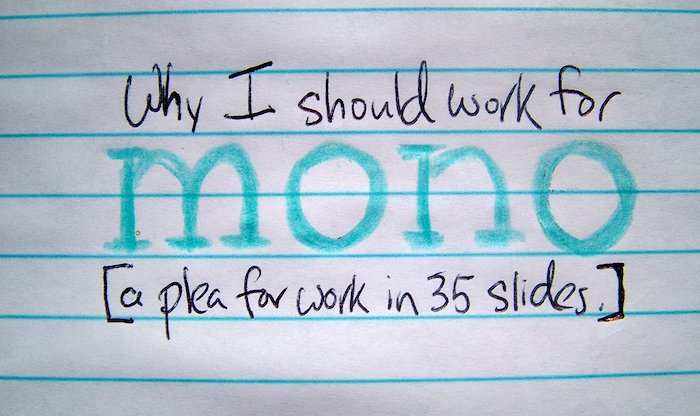 Why I should work for
mono
[a plea for work in 35 slides.]